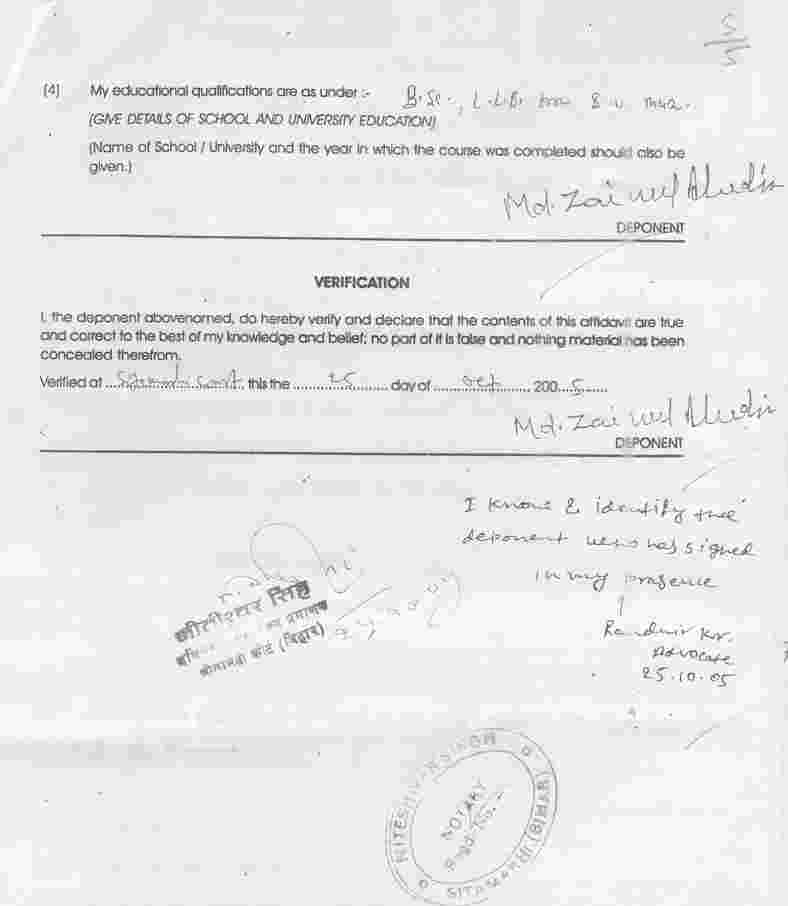 5
5
(4) My educational qualifications are as under :- B.Sc., L.L.B.
(GIVE DETAILS OF SCHOOL AND UNIVERSITY EDUCATION)
(Name of School / University and the year in which the course was completed should also be
given.)
Md. Zai
DEPONENT
VERIFICATION
I, the deponent abovenamed, do hereby verify and declare that the contents of this affidavit are true
and correct to the best of my knowledge and belief; no part of it is false and nothing material has been
concealed therefrom.
Verified at .................... this the .......25....... day of .......oct........, 200...5......
Md. Zai
DEPONENT
I know & identify the
deponent who has signed
in my presence
Randhir Kr.
Advocate
25.10.05
सिंह
कोर्ट (बिहार)
NITESHWAR SINGH
NOTARY
Regd. No.
SITAMARHI (BIHAR)